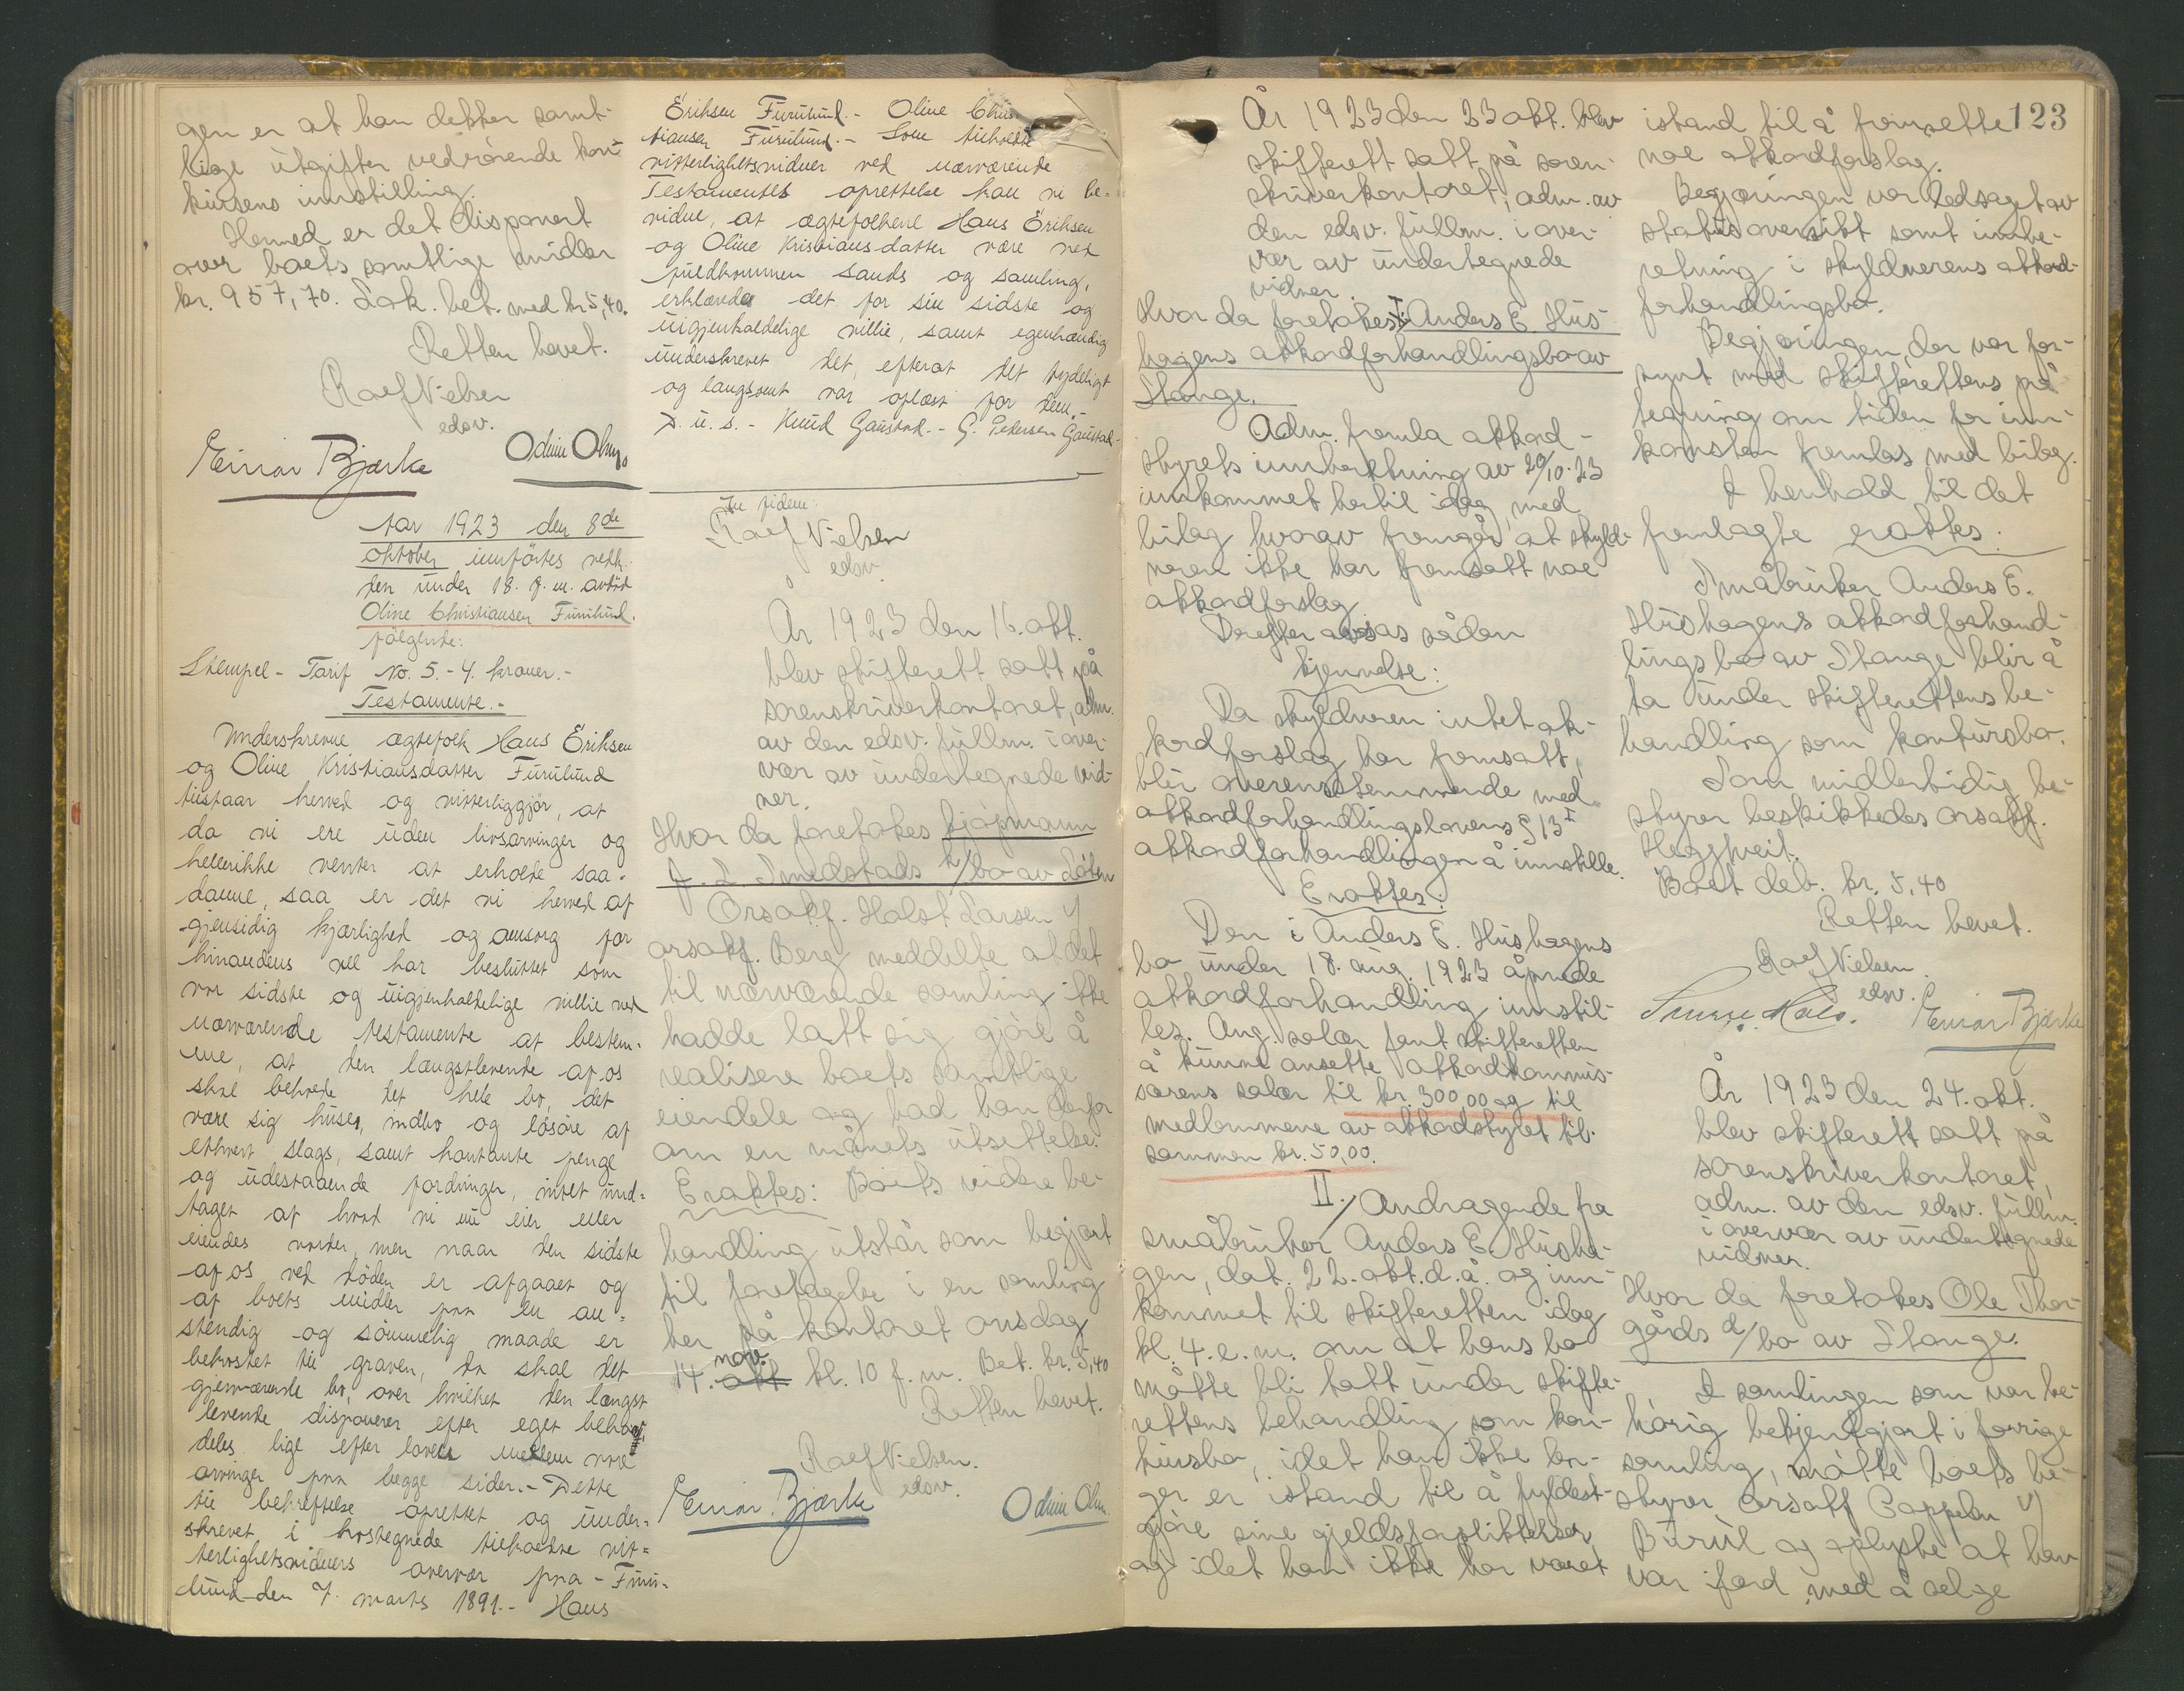 gen er at han dekker samt-
lige utgifter vedrørende kon-
kursens innstilling.
Hermed er det disponert
over boets samtlige midler
kr. 957,70. Sak. bet. med kr 5,40.
Retten hevet.
Roef Nielsen
edsv.
Einar Bjærke Odin Olm
Aar 1923 den 8de
oktober innførtes vedk.
den under 18. f. m. avdød
Oline Christiansen Furulund.
følgende:
Stempel - Tarif No. 5. - 4. kroner.-
Testamente.-
Underskrevne ægtefolk Hans Eriksen
og Oline Kristiansdatter Furulund
tilstaar herved og vitterliggjør, at
da vi ere uden livsarvinger og
hellerikke venter at erholde saa-
danne, saa er det vi herved af
gjensidig kjærlighed og omsorg for
hinandens vel har besluttet som
vor sidste og uigjenkaldelige villie ved
nærværende testamente at bestem-
me, at den længstlevende af os
skal beholde det hele bo, det
være sig huser, indbo og løsøre af
ethvert slags, samt kontante penge
og udestaaende fordringer, intet und-
taget af hvad vi nu eier, eller
eiendes vorder, men naar den sidste
af os ved døden er afgaaet og
af boets midler paa en an-
stendig og sømmelig maade er
bekostet til graven, da skal det
gjenværende bo, over hvilket den længst
levende disponerer efter eget behov,
deles lige efter loven mellem vore
arvinger paa begge sider.- Dette
til bekreftelse oprettet og under-
skrevet i hostegnede tilkaldte vit-
terlighetsvidners overvær paa - Furu-
lund den 7. marts 1891.- Hans
Eriksen Furulund.- Oline Chris
tiansen Furulund.- Som tilkaldte
vitterlighetsvidner ved nærværende
Testamentes oprettelse kan vi be-
vidne, at ægtefolkene Hans Eriksen
og Oline Kristiansdatter være ved
fuldkommen sands og samling,
erklærede det for sin sidste og
uigjenkaldelige villie, samt egenhændig
underskrevet det, efterat det tydeligt
og langsomt var oplæst for dem.-
D. u. s. - Knud Gaustad.- G. Pedersen Gaustad-
In fidem:
Roef Nielsen
edsv.
År 1923 den 16. okt.
blev skifterett satt på
sorenskriverkontoret, adm.
av den edsv. fullm. i over-
vær av undertegnede vid-
ner.
Hvor da foretokes kjøpmann
J. L. Smedstads k/bo av Løten
Orsakf. Holst Larsen f/
orsakf. Berg meddelte at det
til nærværende samling ikke
hadde latt sig gjøre å
realisere boets samtlige
eiendele og bad han derfor
om en måneds utsettelse.
Eraktes: Boets videre be-
handling utstår som begjært
til foretagelse i en samling
her på kontoret onsdag
nov.
14. okt kl. 10 f. m. Bet. kr. 5,40
Retten hevet.
Roef Nielsen.
edsv.
Einar Bjærke Odin Olm.
123
År 1923 den 23 okt. blev
skifterett satt på soren-
skriverkontoret, adm. av
den edsv. fullm. i over-
vær av undertegnede
vidner.
Hvor da foretokes I: Anders E. Hus-
hagens akkordforhandlingsbo av
Stange.
Adm. fremla akkord-
styrets innberetning av 20/10-23
innkommet hertil idag med
bilag hvorav fremgår at skyld-
neren ikke har fremsatt noe
akkordforslag.
Derefter avsas sådan
kjennelse:
Da skyldneren intet ak-
kordforslag har fremsatt,
blir overensstemmende med
akkordforhandlingslovens § 13 I
akkordforhandlingen å innstille.
Eraktes:
Den i Anders E. Hushagens
bo under 18. aug. 1923 åpnede
akkordforhandling innstil-
les. Ang. salær fant skifteretten
å kunne ansette akkordkommis-
særens salær til kr. 300,00 og til
medlemmene av akkordstyret til-
sammen kr. 50,00.
II./ Andragende fra
småbruker Anders E. Husha-
gen, dat. 22. okt. d. å. og inn-
kommet til skifteretten idag
kl. 4. e. m. om at hans bo
måtte bli tatt under skifte-
rettens behandling som kon-
kursbo, idet han ikke len-
ger er istand til å fyldest-
gjøre sine gjeldsforpliktelser,
og idet han ikke har været
istand til å fremsette
noe akkordforslag.
Begjæringen var ledsaget av
statusoversikt samt innbe-
retning i skyldnerens akkord-
forhandlingsbo.
Begjæringen, der var for-
synt med skifterettens på
tegning om tiden for inn-
komsten fremlas med bilag.
I henhold til det
fremlagte eraktes:
Småbruker Anders E.
Hushagens akkordforhand-
lingsbo av Stange blir å
ta under skifterettens be-
handling som konkursbo.
Som midlertidig be-
styrer beskikkedes orsakf.
Heggtveit.
Boet deb. kr. 5,40
Retten hevet.
Roef Nielsen.
edsv.
Einar Bjærke
År 1923 den 24. okt.
blev skifterett satt på
sorenskriverkontoret,
adm. av den edsv. fullm.
i overvær av undertegnede
vidner.
Hvor da foretokes Ole Thor-
gårds d/bo av Stange.
I samlingen som var be-
hørig bekjentgjort i forrige
samling, møtte boets be-
styrer orsakf Cappelen v/
Burul og oplyste at han
var ifærd med å selge